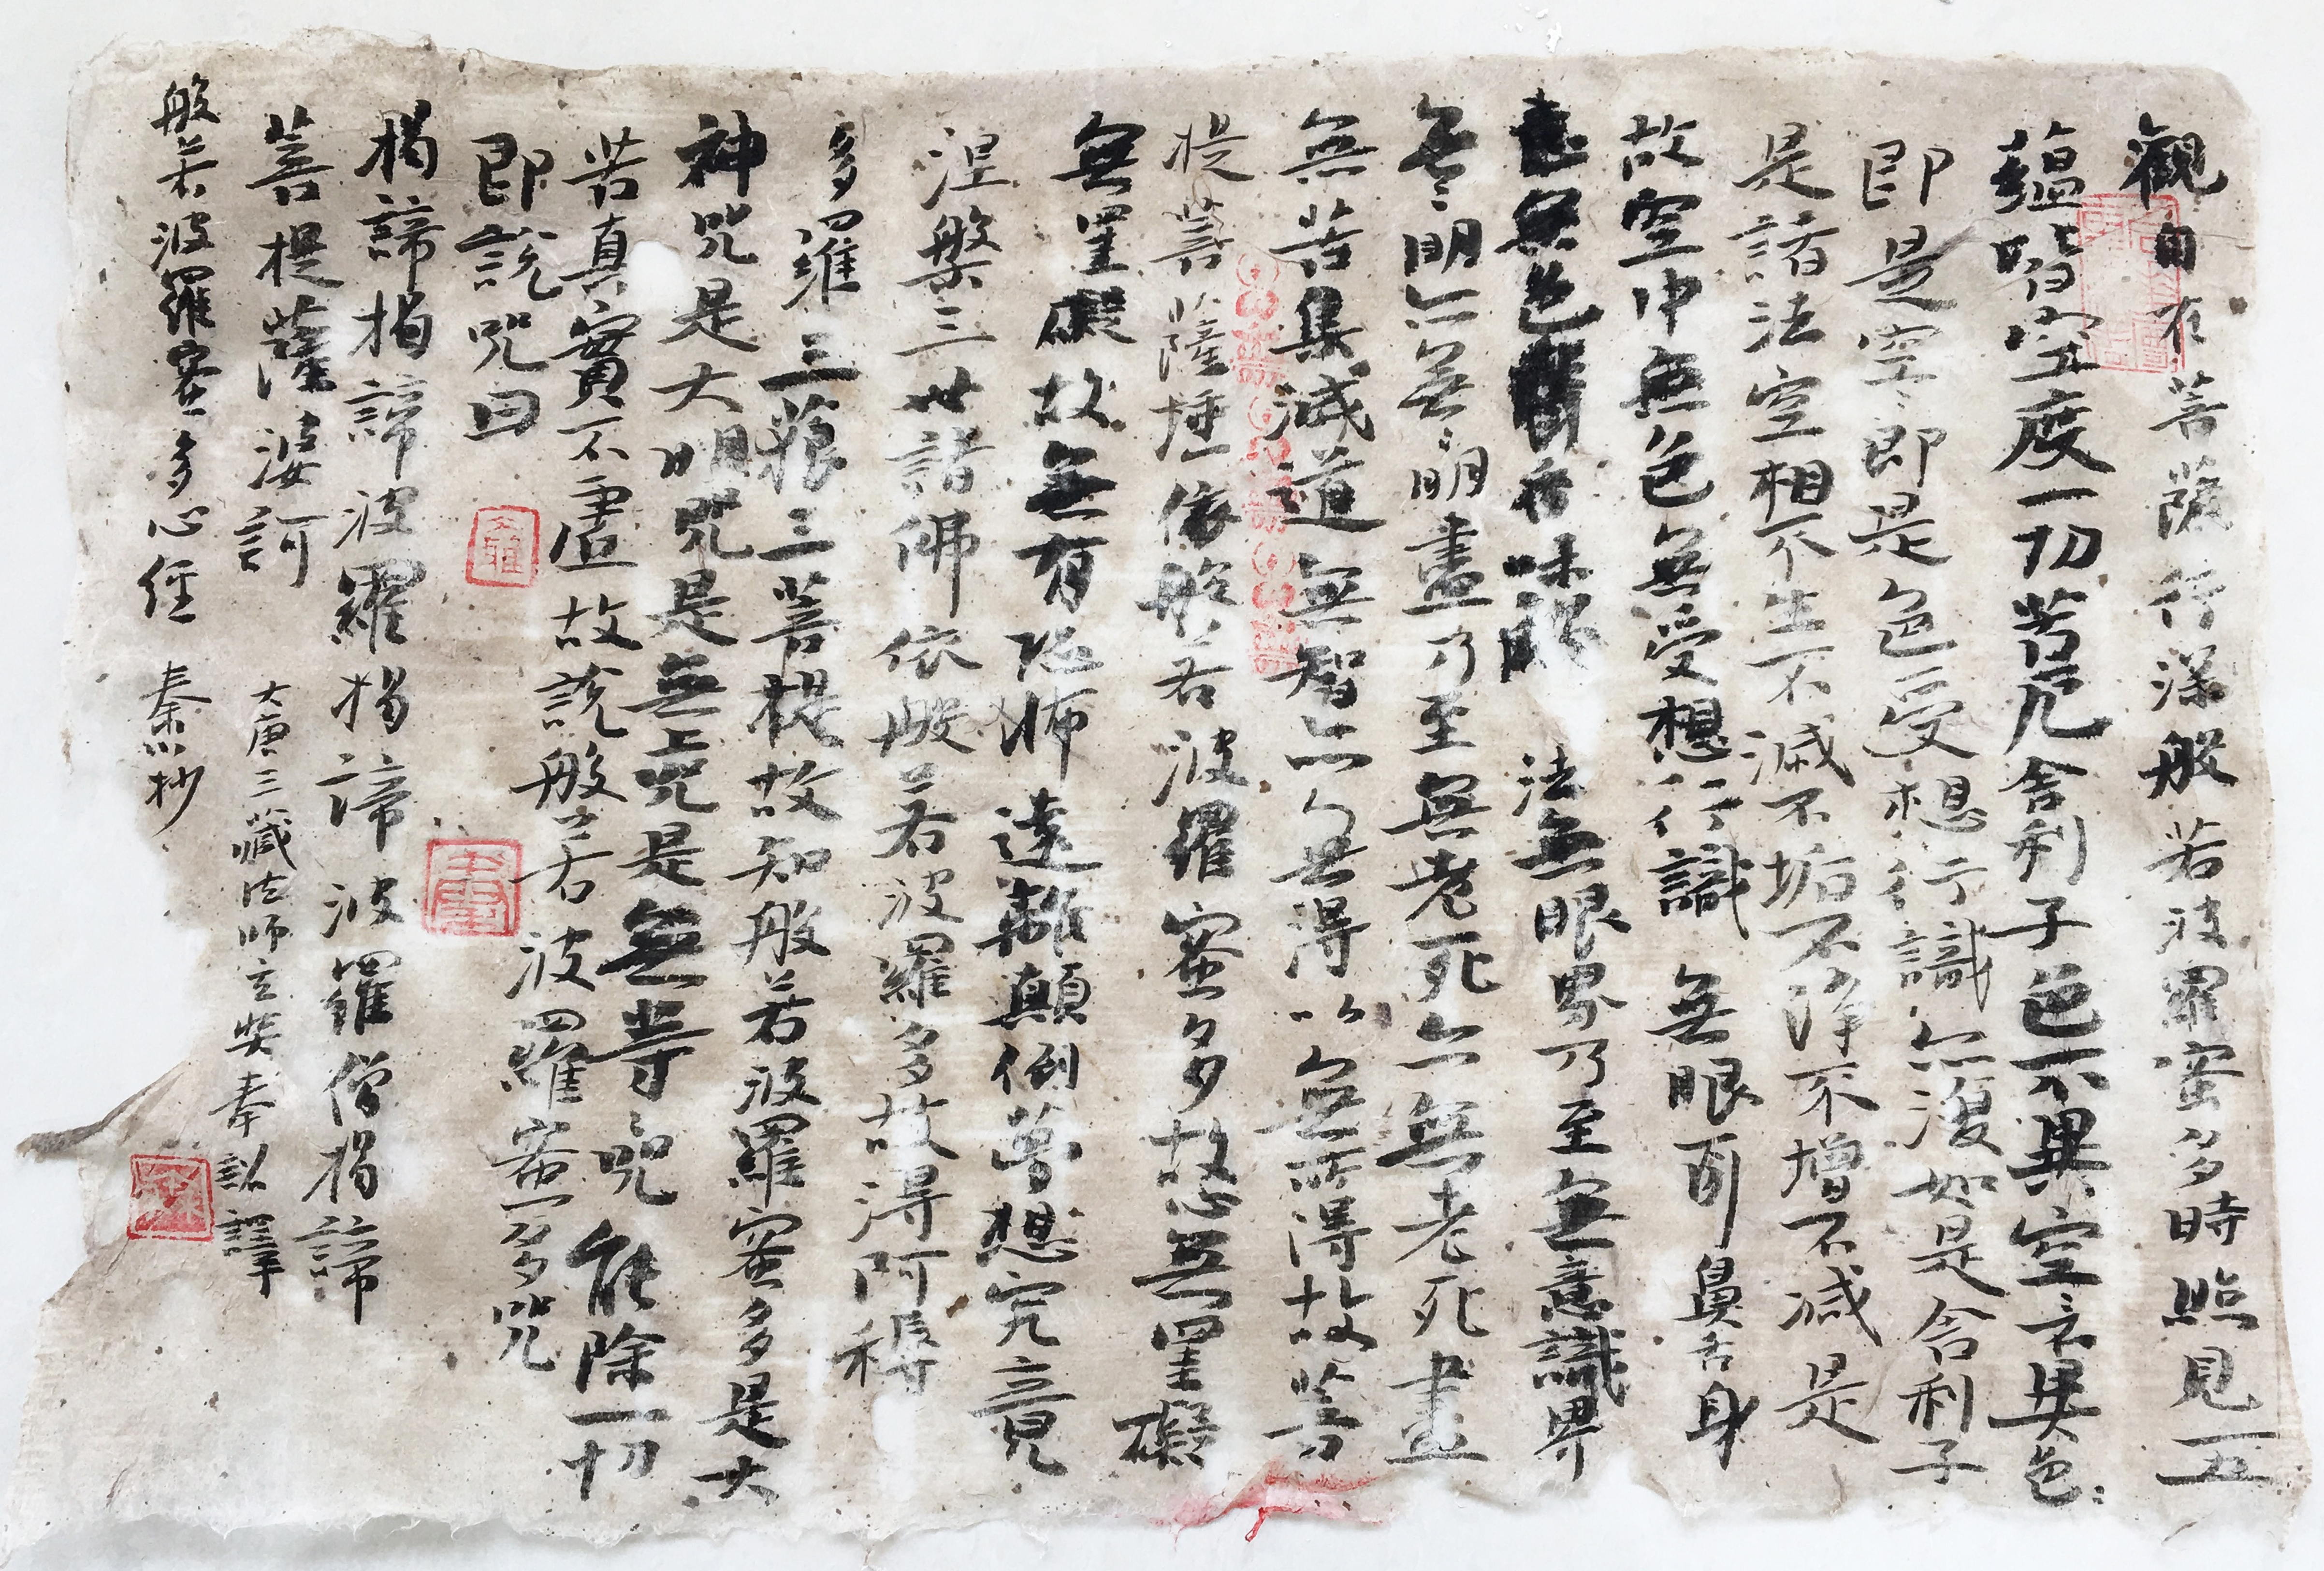 觀自在菩薩行深般若波羅蜜多時照見五
蘊皆空度一切苦厄舍利子色不異空〻不異色〻
即是空〻即是色受想行識亦復如是舍利子
是諸法空相不生不滅不垢不淨不增不減是
故空中無色無受想行識無眼耳鼻舌身
意無色聲香味觸法無眼界乃至無意識界
無〻明亦無〻明盡乃至無老死亦無老死盡
無苦集滅道無智亦無得以無所得故菩
提菩薩埵依般若波羅蜜多故心無罣礙
無罣礙故無有恐怖遠離顛倒夢想究竟
涅槃三世諸佛依般若波羅多故得阿耨
多羅三藐三菩提故知般若波羅蜜多是大
神咒是大明咒是無上咒是無等咒能除一切
苦真實不虛故說般若波羅蜜多咒
即說咒曰
揭諦揭諦波羅揭諦波羅僧揭諦
菩提薩婆訶
大唐三藏法師玄奘奉詔譯
般若波羅蜜多心經 秦抄